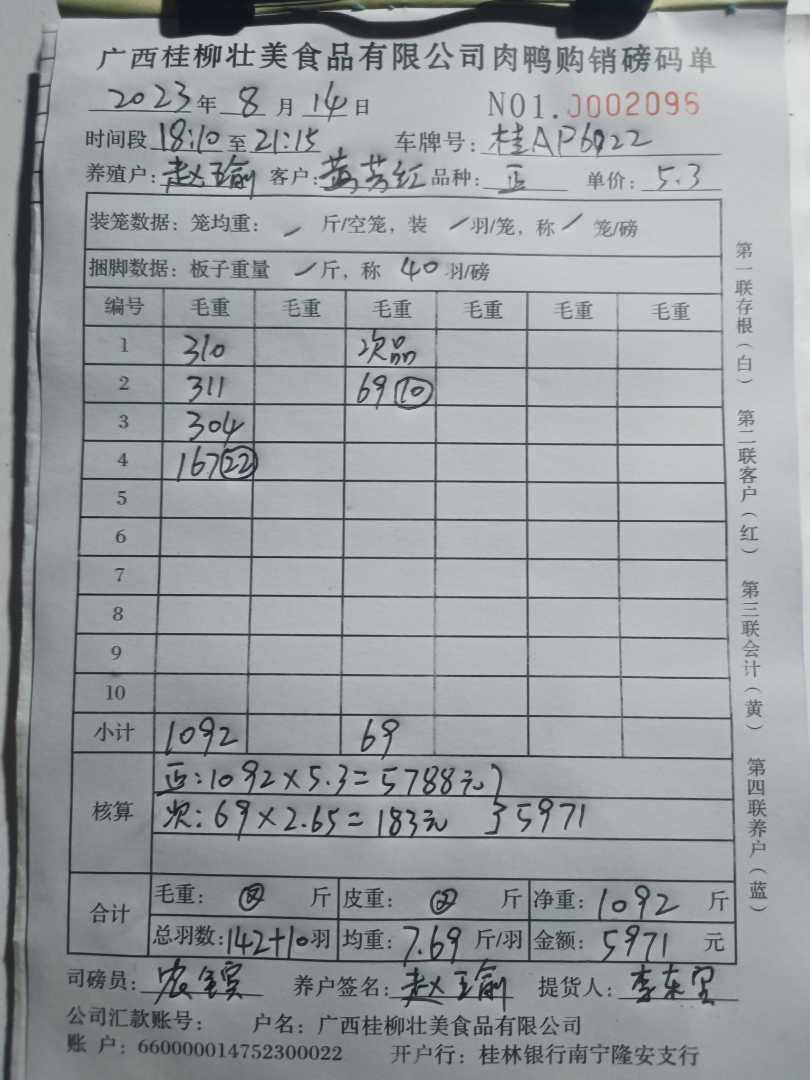 广西桂柳壮美食品有限公司肉鸭购销磅码单
2023年 8月 14日 NO1.0002095
时间段 18:10 至 21:15 车牌号: 桂AP6922
养殖户: 赵玉俞 客户: 黄芳红 品种: 正 单价: 5.3
装笼数据: 笼均重: / 斤/空笼, 装 / 羽/笼, 称 / 笼/磅
捆脚数据: 板子重量 / 斤, 称 40 羽/磅
编号 毛重 毛重 毛重 毛重 毛重 毛重
1 310 次品
2 311 69 ⑩
3 304
4 167 ㉒
5
6
7
8
9
10
小计 1092 69
核算
正: 1092×5.3=5788元
次: 69×2.65=183元 } 5971
合计
毛重: 斤 皮重: 斤 净重: 1092 斤
总羽数: 142+10 羽 均重: 7.69 斤/羽 金额: 5971 元
司磅员: 养户签名: 赵玉俞 提货人:
公司汇款账号: 户名: 广西桂柳壮美食品有限公司
账 户: 660000014752300022 开户行: 桂林银行南宁隆安支行
第一联存根(白) 第二联客户(红) 第三联会计(黄) 第四联养户(蓝)